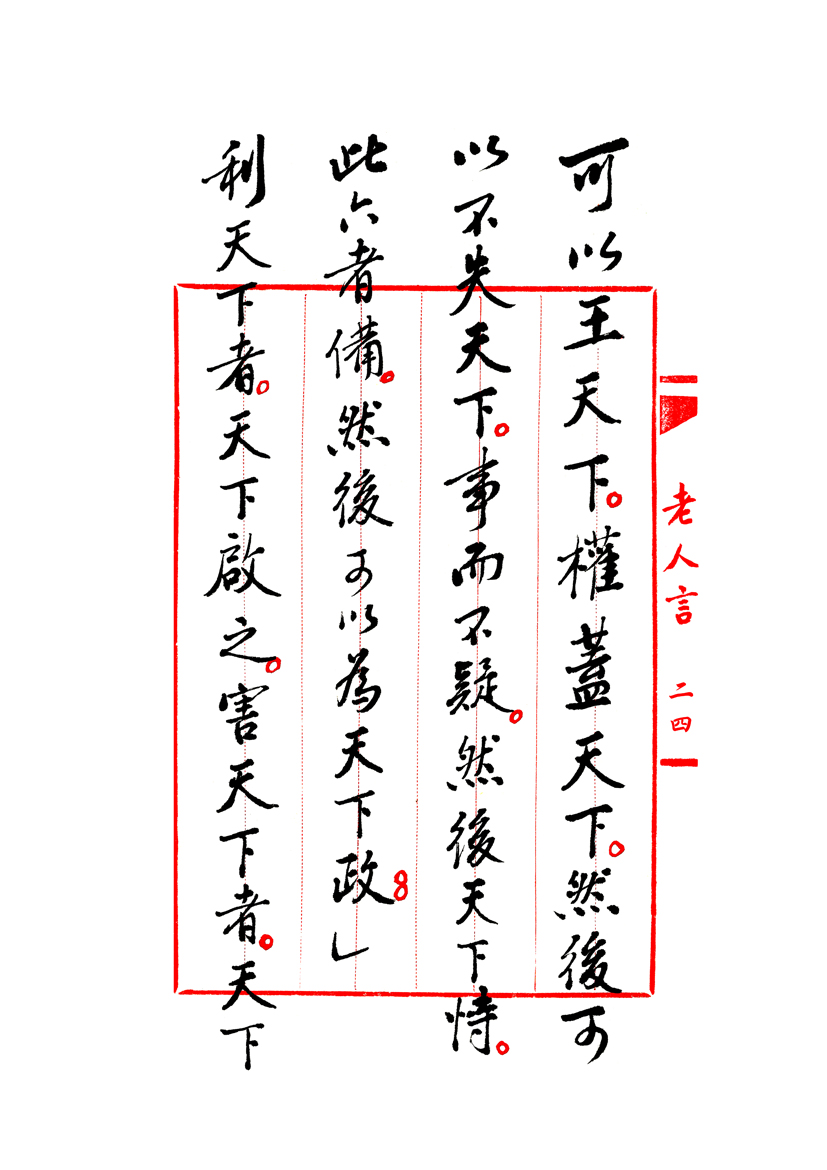 可以王天下。權蓋天下。然後可
以不失天下。事而不疑。然後天下恃。
此六者備。然後可以為天下政。」
利天下者。天下啟之。害天下者。天下
老人言 二四